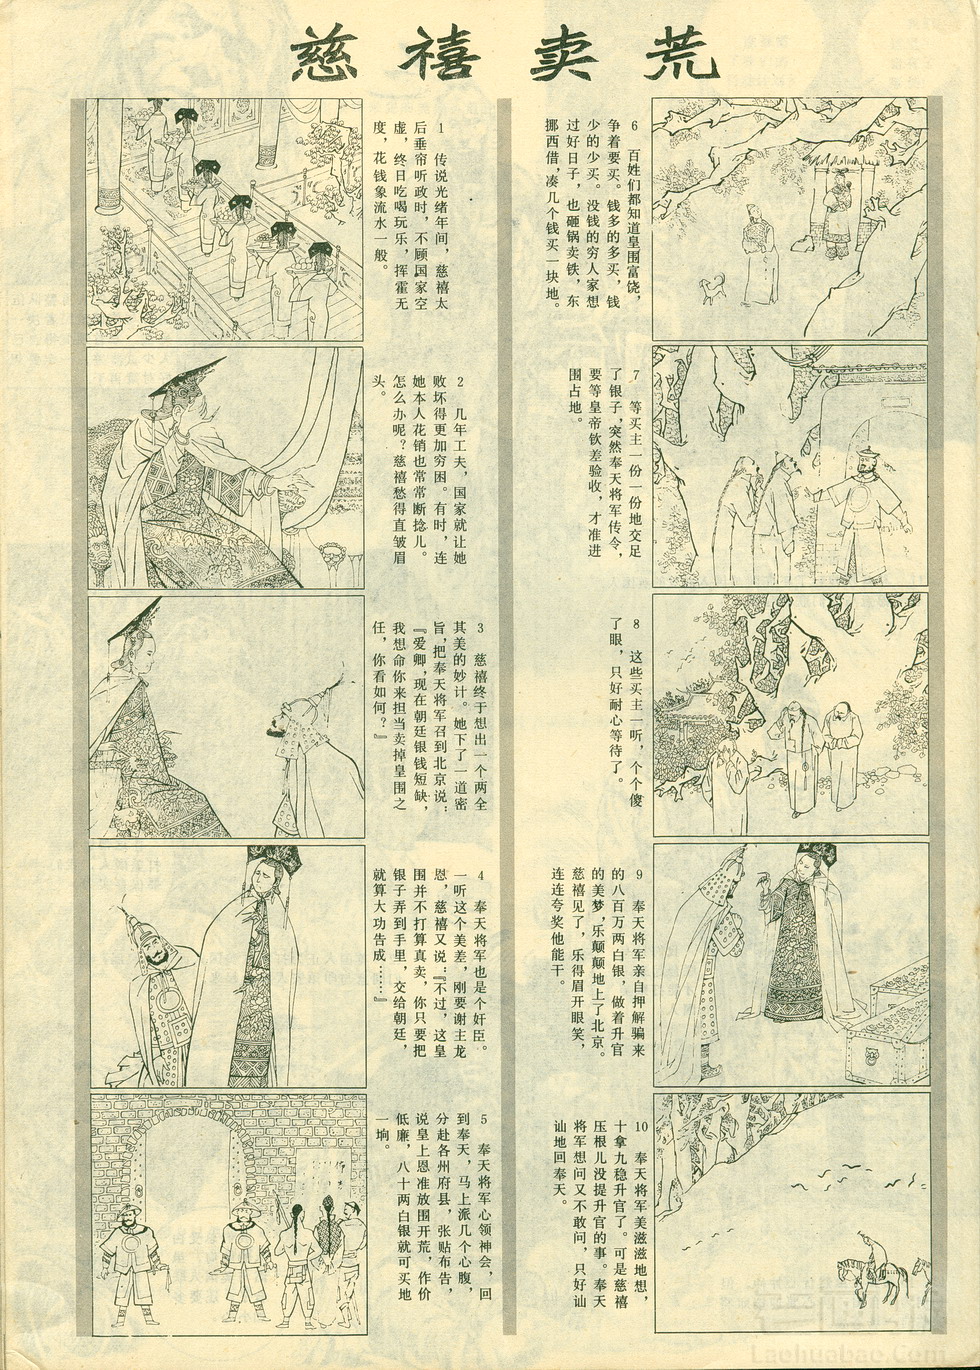 慈禧卖荒
1 传说光绪年间，慈禧太
后垂帘听政时，不顾国家空
虚，终日吃喝玩乐，挥霍无
度，花钱象流水一般。
2 几年工夫，国家就让她
败坏得更加穷困。有时，连
她本人花销也常常断捻儿。
怎么办呢？慈禧愁得直皱眉
头。
3 慈禧终于想出一个两全
其美的妙计。她下了一道密
旨，把奉天将军召到北京说：
『爱卿，现在朝廷银钱短缺，
我想命你来担当卖掉皇围之
任，你看如何？』
4 奉天将军也是个奸臣。
一听这个美差，刚要谢主龙
恩，慈禧又说：『不过，这皇
围并不打算真卖，你只要把
银子弄到手里，交给朝廷，
就算大功告成……』
5 奉天将军心领神会，回
到奉天，马上派几个心腹，
分赴各州府县，张贴布告，
说皇上恩准放围开荒，作价
低廉，八十两白银就可买地
一垧。
6 百姓们都知道皇围富饶，
争着要买。钱多的多买，钱
少的少买。没钱的穷人家想
过好日子，也砸锅卖铁，东
挪西借，凑几个钱买一块地。
7 等买主一份一份地交足
了银子，突然奉天将军传令，
要等皇帝钦差验收，才准进
围占地。
8 这些买主一听，个个傻
了眼，只好耐心等待了。
9 奉天将军亲自押解骗来
的八百万两白银，做着升官
的美梦，乐颠颠地上了北京。
慈禧见了，乐得眉开眼笑，
连连夸奖他能干。
10 奉天将军美滋滋地想，
十拿九稳升官了。可是慈禧
压根儿没提升官的事。奉天
将军想问又不敢问，只好讪
讪地回奉天。
Laohuabao.Com